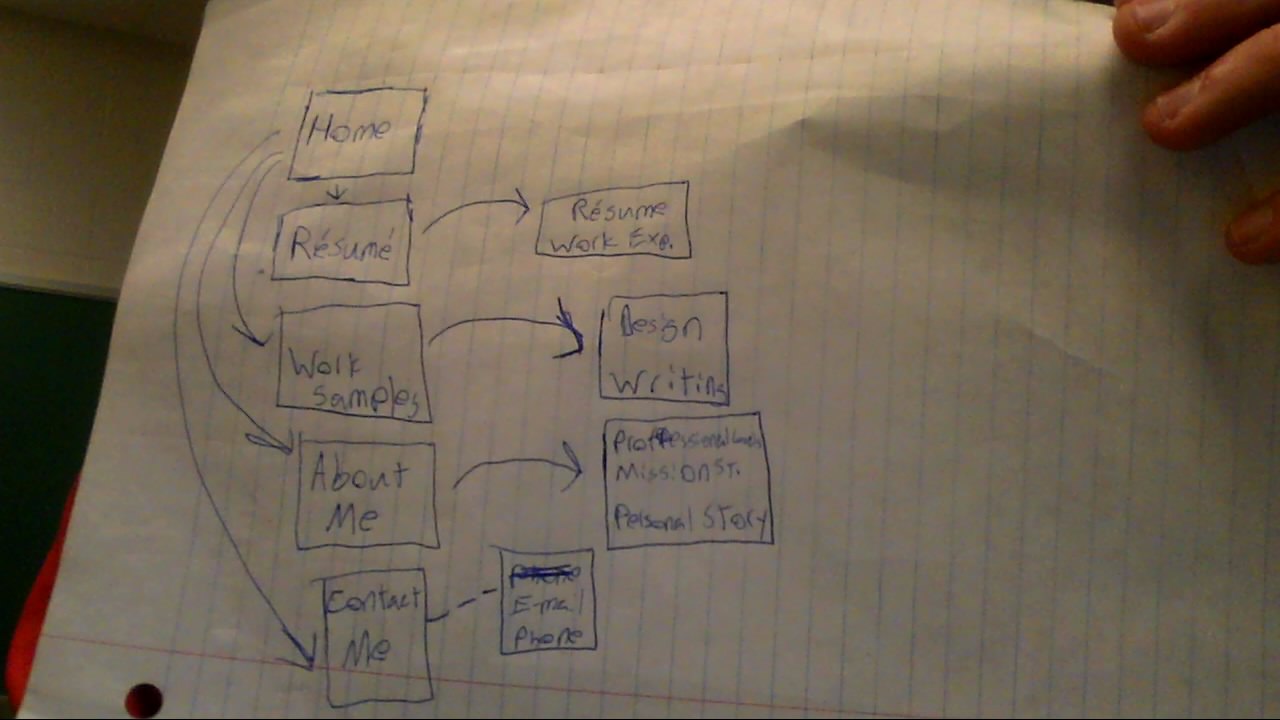 Home
Résumé
Résume
Work Exp.
Work
Samples
Design
Writing
About
Me
Proffessional
Mission ST.
Personal Story
Contact
Me
E-mail
Phone